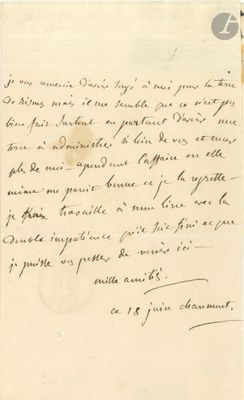 je vous remercie d'avoir songé à moi pour la terre
de mais il me semble que ce n'est pas
bien fait surtout en partant d'avoir une
terre à administrer si loin de vous et
plus de moi — cependant l'affaire en elle
même me paroit bonne et je la regrette —
je travaille à mon livre avec la
double impatience qu'il soit fini et que
je puisse vous presser de venir ici —
mille amitiés.
ce 18 juin chaumont.